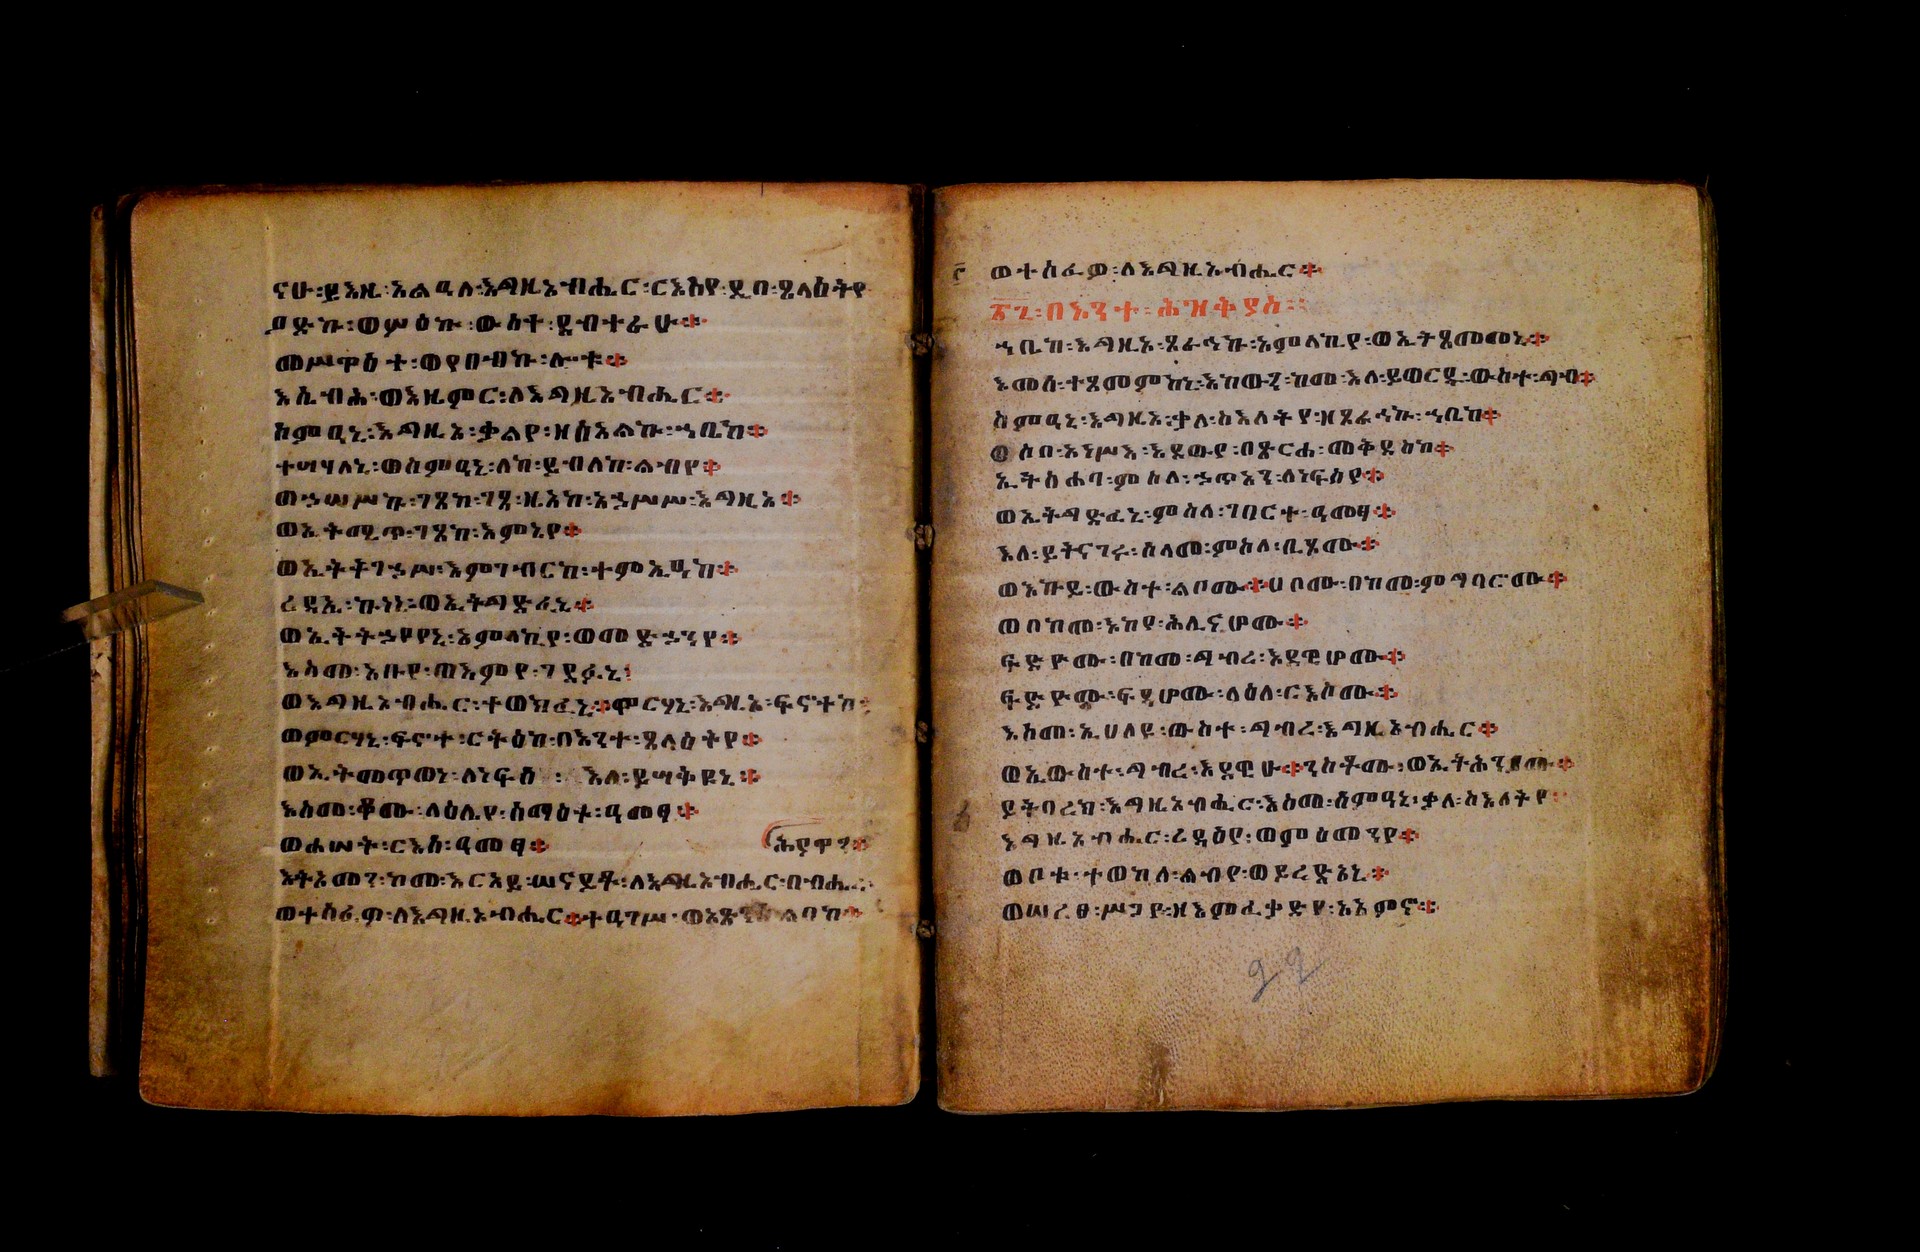 ናሁ፡ይእዜ፡አልዓለ፡እግዚአብሔር፡ርእስየ፡ዲበ፡ጸላዕትየ
ዖድኩ፡ወሦዕኩ፡ውስተ፡ደብተራሁ።
መሥዋዕተ፡ወየበብኩ፡ሎቱ።
እሴብሕ፡ወእዜምር፡ለእግዚአብሔር።
ስምዓኒ፡እግዚኦ፡ቃልየ፡ዘሰአልኩ፡ኀቤከ።
ተሣሃለኒ፡ወስምዓኒ፡ለከ፡ይብለከ፡ልብየ።
ወኃሠሥኩ፡ገጸከ፡ገጸ፡ዚአከ፡አኃሥሥ፡እግዚኦ።
ወኢትሚጥ፡ገጸከ፡እምኔየ።
ወኢትትገኃሥ፡እምገብርከ፡ተምኢዓከ።
ረዳኤ፡ኩነኒ፡ወኢትግድፈኒ።
ወኢትትኃየየኒ፡አምላኪየ፡ወመድኃንየ።
እስመ፡አቡየ፡ወእምየ፡ገደፉኒ፤
ወእግዚአብሔር፡ተወክፈኒ።ምርሃኒ፡እግዚኦ፡ፍኖተከ።
ወምርሃኒ፡ፍኖተ፡ርትዕከ፡በእንተ፡ጸላዕትየ።
ወኢትመጥወነ፡ለነፍሰ፡እለ፡ይሣቅዩኒ።
እስመ፡ቆሙ፡ላዕሌየ፡ሰማዕተ፡ዓመፃ።
ወሐሠት፡ርእሳ፡ዓመፃ።
ሕያዋን።
እትአመን፡ከመ፡እርአይ፡ሠናይቶ፡ለእግዚአብሔር፡በብሔረ፡
ወተሰፈዎ፡ለእግዚአብሔር።ተዓገሥ፡ወአጽንዕ፡ልበከ።
ወተሰፈዎ፡ለእግዚአብሔር።
፳፯፡በእንተ፡ሕዝቅያስ።
ኀቤከ፡እግዚኦ፡ጸራኅኩ፡አምላኪየ፡ወኢትጸመመኒ።
እመሰ፡ተጸመምከኒ፡እከውን፡ከመ፡እለ፡ይወርዱ፡ውስተ፡ግብ።
ስምዓኒ፡እግዚኦ፡ቃለ፡ስእለትየ፡ዘጸራኅኩ፡ኀቤከ።
ሶበ፡አነሥእ፡እደውየ፡በጽርሐ፡መቅደስከ።
ኢትስሐባ፡ምስለ፡ኃጥአን፡ለነፍስየ።
ወኢትግድፈኒ፡ምስለ፡ገበርተ፡ዓመፃ።
እለ፡ይትናገሩ፡ሰላመ፡ምስለ፡ቢጾሙ።
ወእኩይ፡ውስተ፡ልቦሙ።ሀቦሙ፡በከመ፡ምግባሮሙ።
ወበከመ፡እከየ፡ሕሊናሆሙ።
ፍድዮሙ፡በከመ፡ግብረ፡እደዊሆሙ።
ፍድዮሙ፡ፍዳሆሙ፡ላዕለ፡ርእሶሙ።
እስመ፡ኢሀለዩ፡ውስተ፡ግብረ፡እግዚአብሔር።
ወኢውስተ፡ግብረ፡እደዊሁ።ንስቶሙ፡ወኢትሕንጾሙ።
ይትባረክ፡እግዚአብሔር፡እስመ፡ሰምዓኒ፡ቃለ፡ስእለትየ።
እግዚአብሔር፡ረዳዕየ፡ወምዕመንየ።
ወቦቱ፡ተወከለ፡ልብየ፡ወይረድአኒ።
ወሠረፀ፡ሥጋየ፡ዘእምፈቃድየ፡አአምኖ።
22